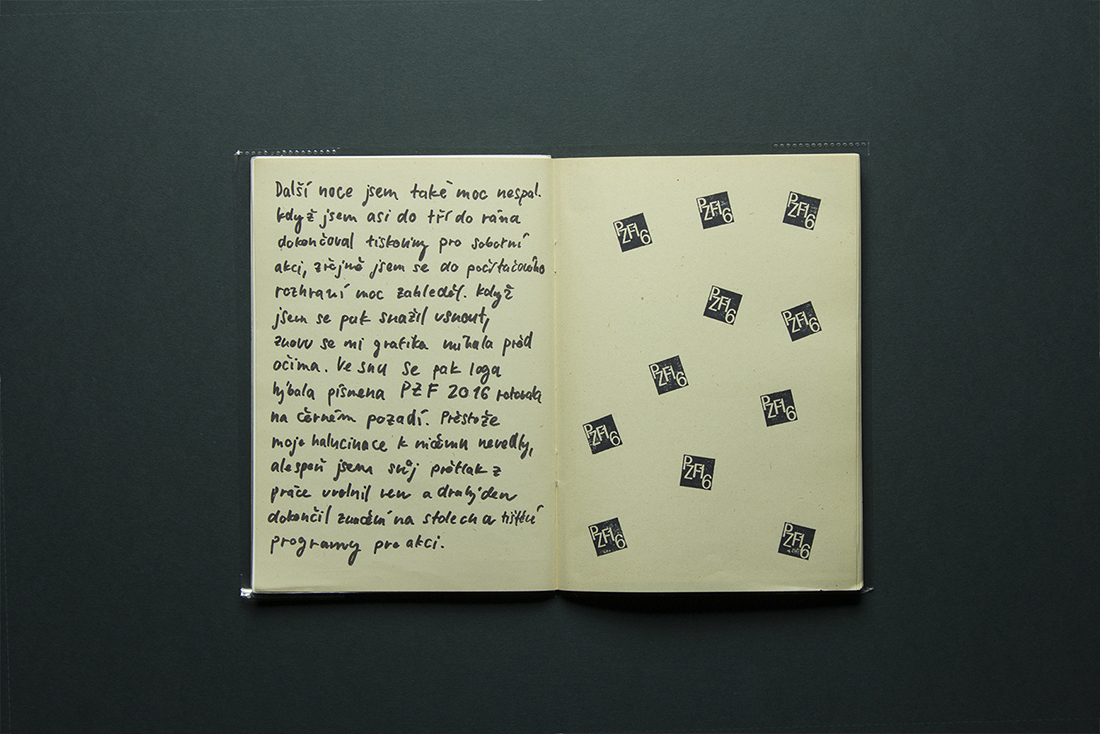 Další noce jsem také moc nespal.
Když jsem asi do tří do rána
dokončoval tiskoviny pro sobotní
akci, zřejmě jsem se do počítačového
rozhraní moc zahleděl. Když
jsem se pak snažil usnout,
znovu se mi grafika míhala před
očima. Ve snu se pak loga
hýbala písmena PŽF 2016 rotovala
na černém pozadí. Přestože
moje halucinace k ničemu nevedly,
alespoň jsem svůj přetlak z
práce uvolnil ven a druhý den
dokončil značení na stolech a tištění
programy pro akci.
PŽF16
PŽF16
PŽF16
PŽF16
PŽF16
PŽF16
PŽF16
PŽF16
PŽF16
PŽF16
PŽF16